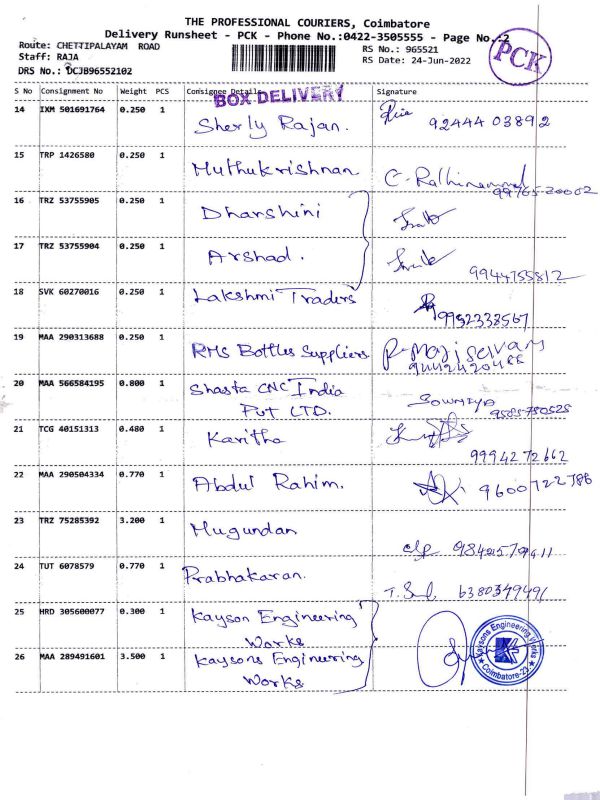 THE PROFESSIONAL COURIERS, Coimbatore
Delivery Runsheet - PCK - Phone No.:0422-3505555 - Page No.:2
Route: CHETTIPALAYAM ROAD
RS No.: 965521
PCK
Staff: RAJA
RS Date: 24-Jun-2022
DRS No.: DCJB96552102
S No Consignment No Weight PCS Consignee Details Signature
BOX DELIVERY
14 IXM 501691764 0.250 1 Sherly Rajan. 92444 03892
15 TRP 1426580 0.250 1 Muthukrishnan
16 TRZ 53755905 0.250 1 Dharshini
17 TRZ 53755904 0.250 1 Arshad. 9944755812
18 SVK 60270016 0.250 1 Lakshmi Traders 9952338567
19 MAA 290313688 0.250 1 RMS Bottles Suppliers
20 MAA 566584195 0.800 1 Shasta CNC India
Pvt LTD.
21 TCG 40151313 0.480 1 Kavitha 99942 72662
22 MAA 290504334 0.770 1 Abdul Rahim. 9600722786
23 TRZ 75285392 3.200 1 Mugundan
24 TUT 6078579 0.770 1 Prabhakaran.
25 HRD 305600077 0.300 1 Kayson Engineering
Works
26 MAA 289491601 3.500 1 Kaysons Engineering
Works
Kaysons Engineering Works
Coimbatore-23